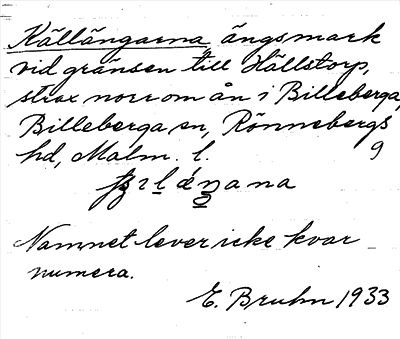 Källängarna, ängsmark
vid gränsen till Hällstorp,
strax norr om ån i Billeberga,
Billeberga sn, Rönnebergs
hd, Malm. l. 9
Namnet lever icke kvar
numera.
E. Bruhn 1933